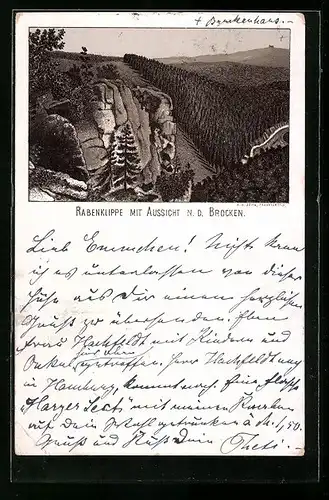 + Brockenhaus.
RABENKLIPPE MIT AUSSICHT N. D. BROCKEN.
Lieb Emmchen! Nicht kann
ich es unterlassen von dieser
Höhe aus Dir einen herzlichen
Gruß zu übersenden. Eben
Frau Hachfeldt mit Kindern und
Onkel getroffen. Herr Hachfeldt
in Hamburg, kommt Eine Flasche
"Harzer Sect" mit meinen
auf Dein Wohl getrunken a M. 1,50.
Gruß und Kuß Dein Theti.